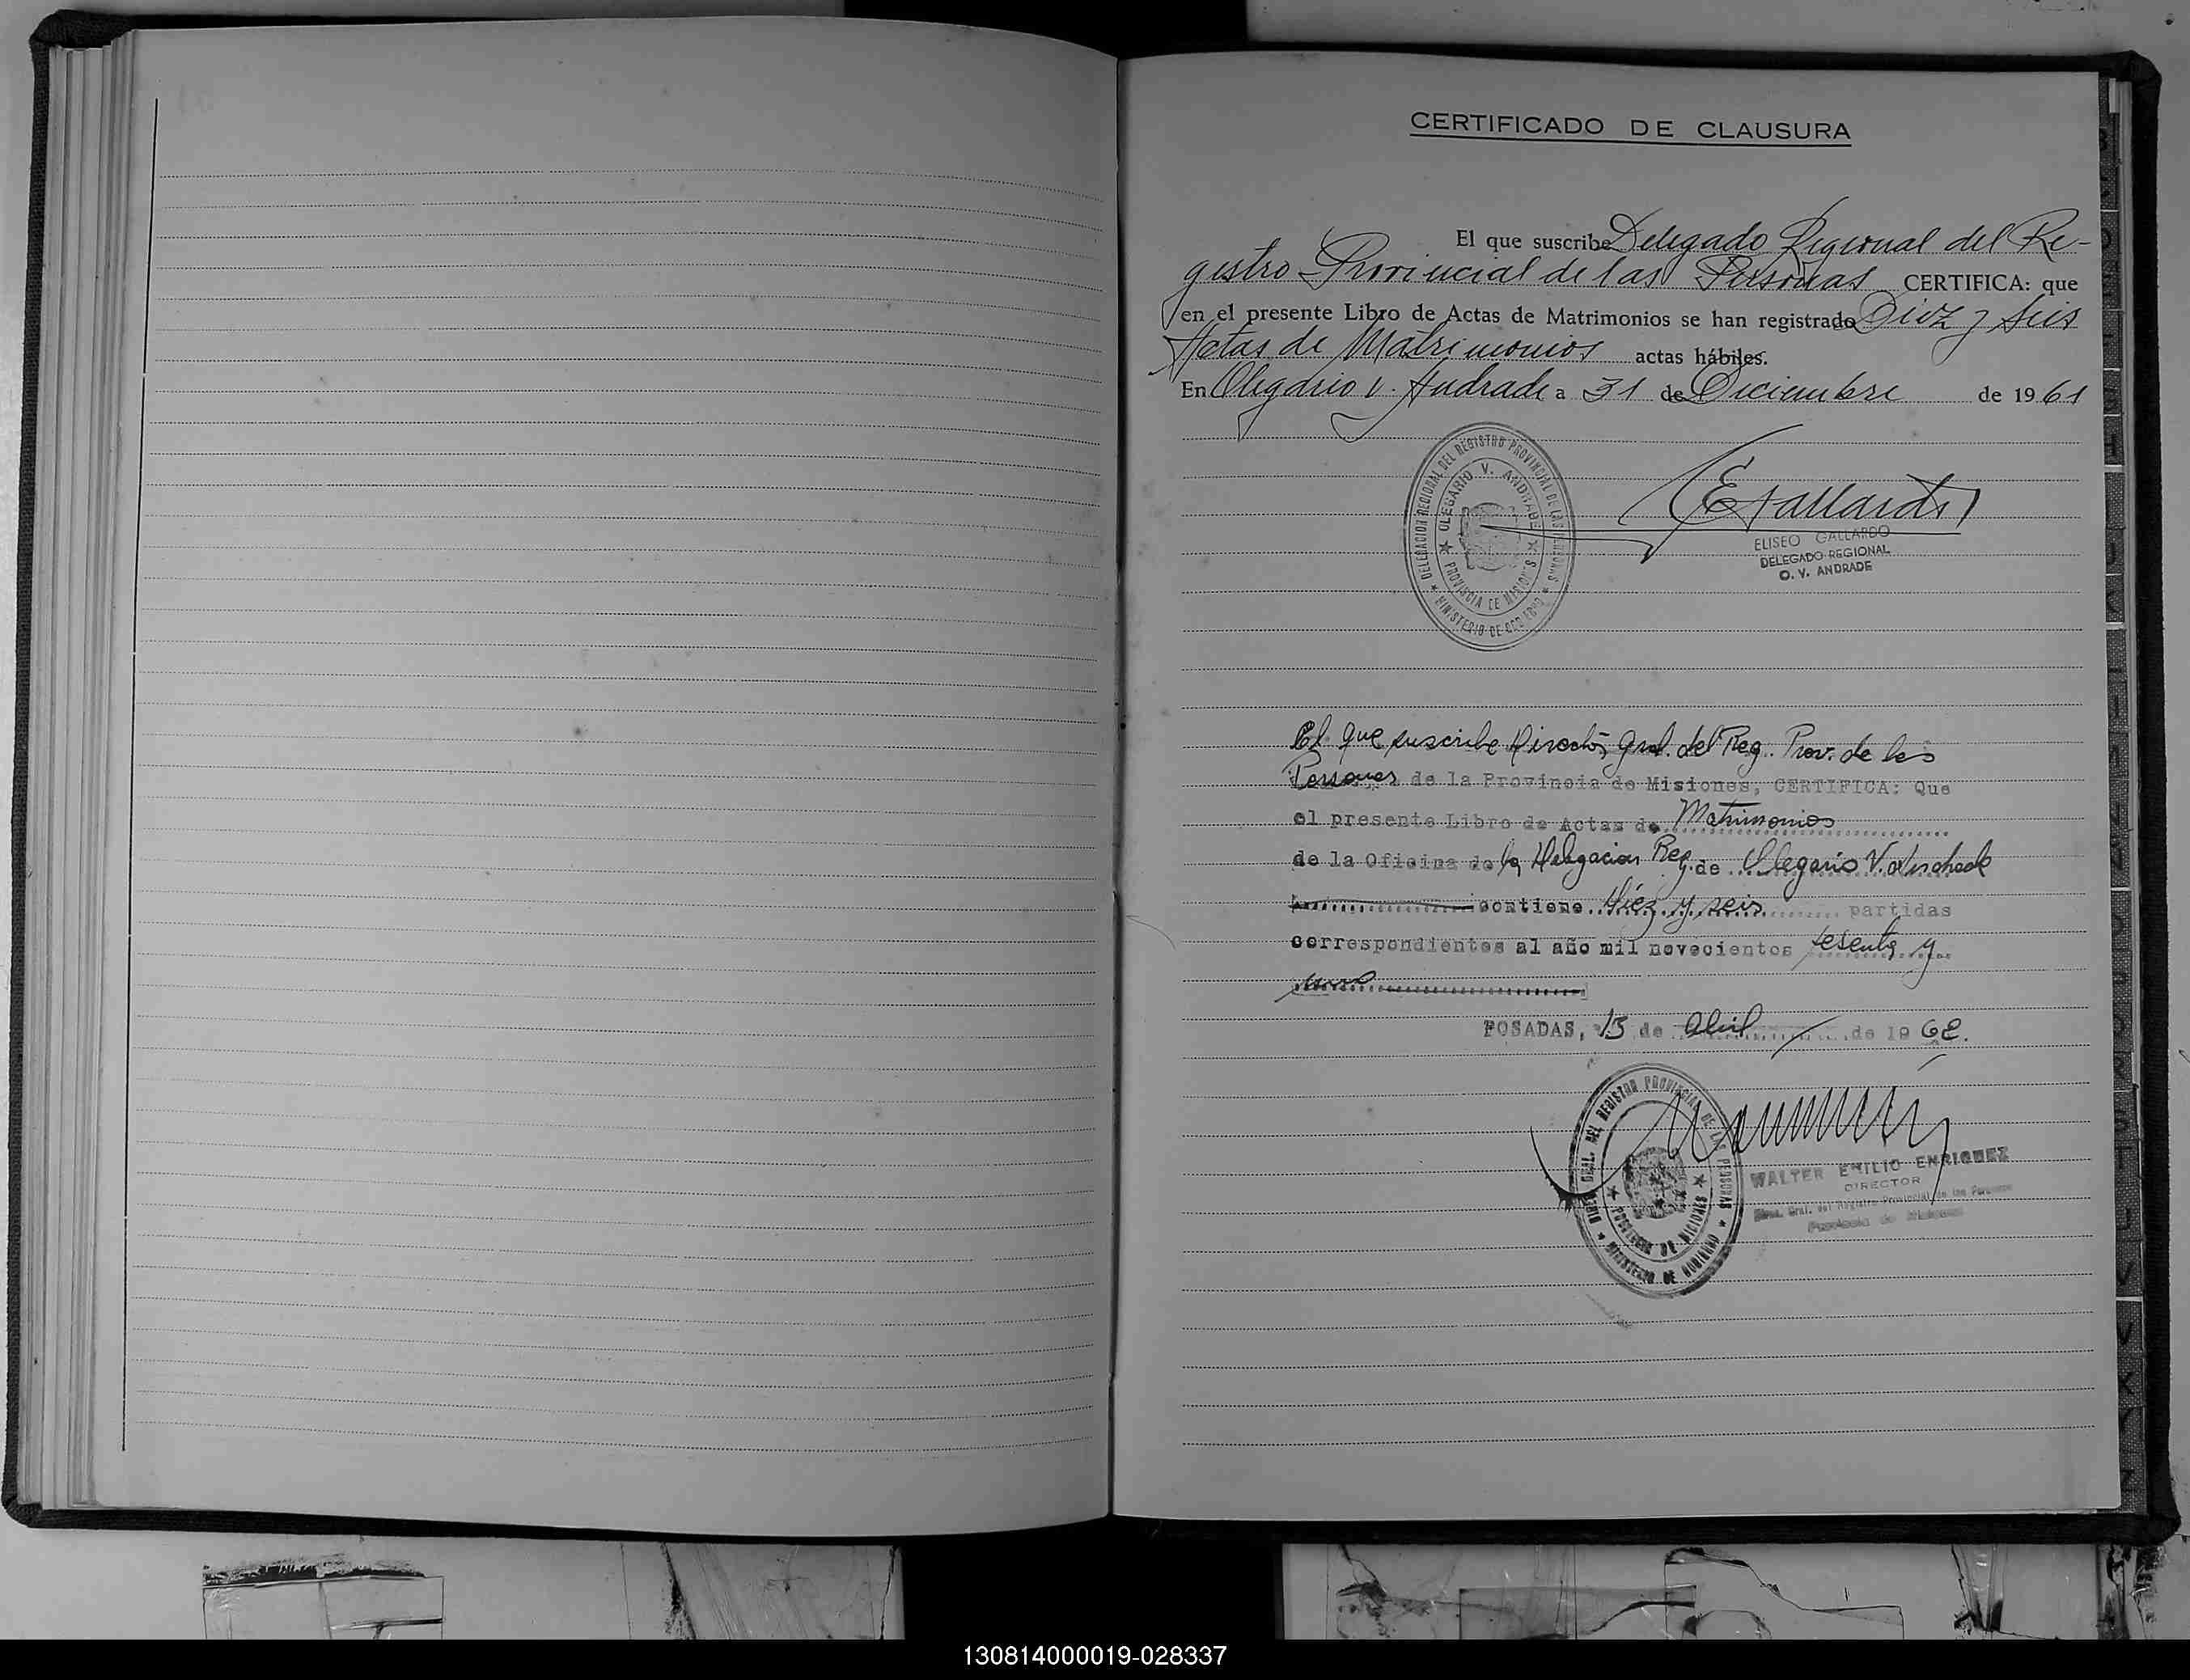 CERTIFICADO DE CLAUSURA
El que suscribe Delegado Regional del Re-
gistro Provincial de las Personas CERTIFICA: que
en el presente Libro de Actas de Matrimonios se han registrado Diez y Seis
Actas de Matrimonios actas hábiles.
En Olegario V. Andrade a 31 de Diciembre de 1961
DELEGACION REGIONAL DEL REGISTRO PROVINCIAL DE LAS PERSONAS
OLEGARIO V. ANDRADE
PROVINCIA DE MISIONES
MINISTERIO DE GOBIERNO
EGallardo
ELISEO GALLARDO
DELEGADO REGIONAL
O. V. ANDRADE
El que suscribe Director Gral. del Reg. Prov. de las
Personas de la Provincia de Misiones, CERTIFICA: Que
el presente Libro de Actas de Matrimonios
de la Oficina de la Delegacion Reg. de Olegario V. Andrade
contiene Diez y seis partidas
correspondientes al año mil novecientos sesenta y
uno
POSADAS, 13 de Abril de 1962.
DIREC. GRAL. DEL REGISTRO PROVINCIAL DE LAS PERSONAS
PROVINCIA DE MISIONES
MINISTERIO DE GOBIERNO
WALTER EMILIO ENRIQUEZ
DIRECTOR
Direc. Gral. del Registro Provincial de las Personas
Provincia de Misiones
130814000019-028337